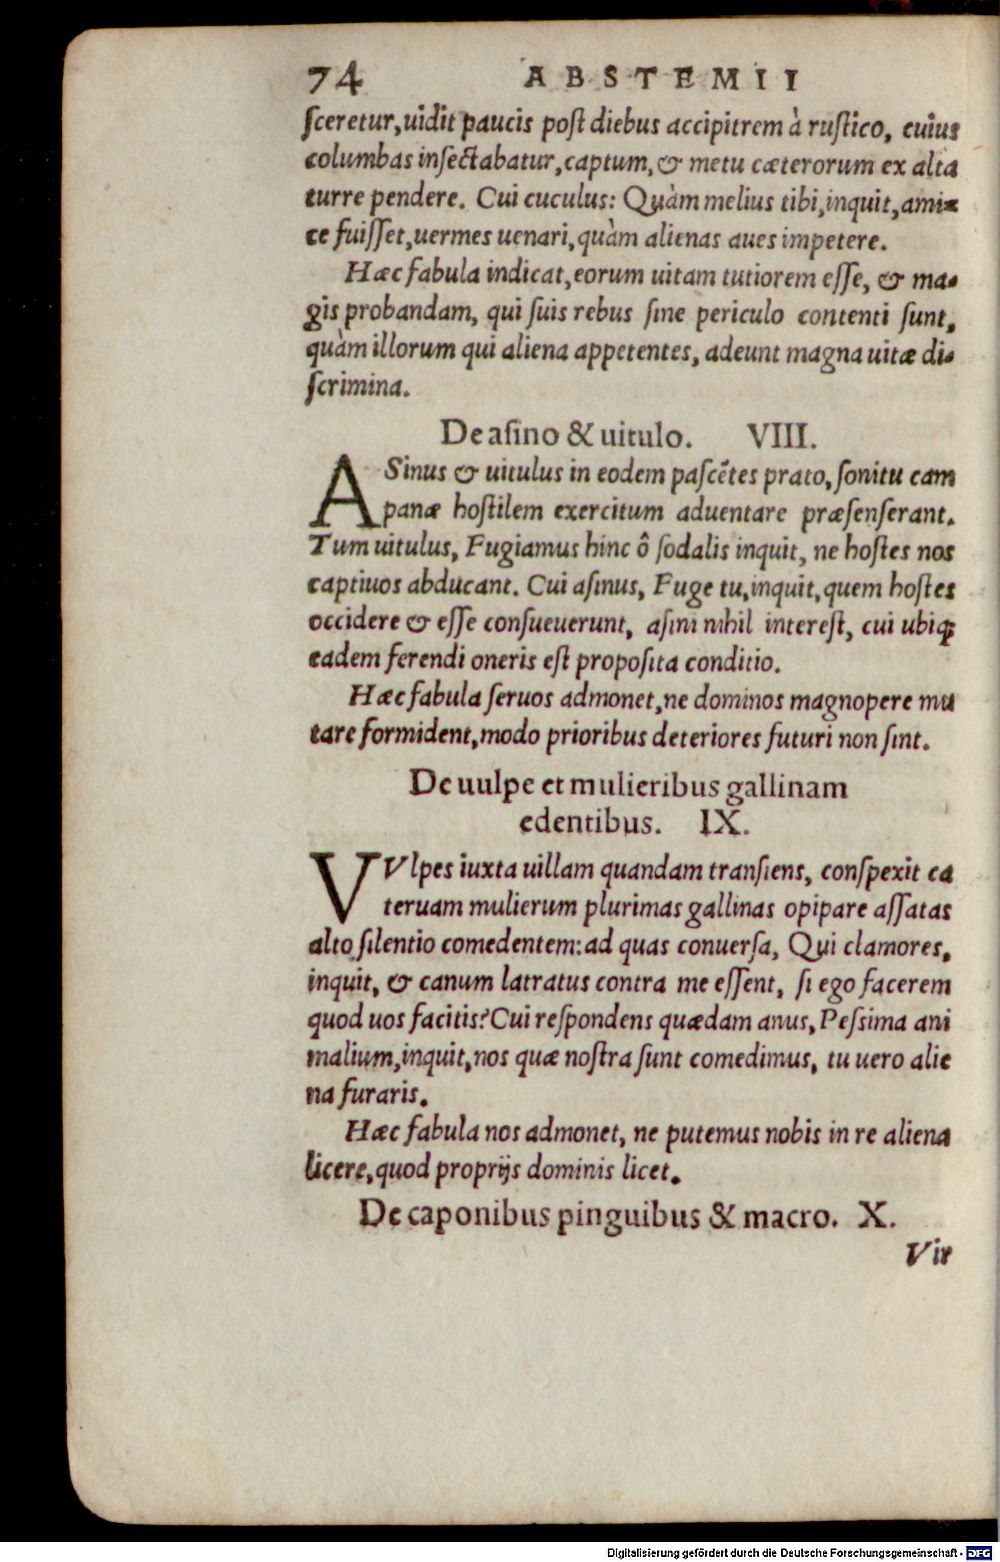 74 ABSTEMII
ſceretur, uidit paucis poſt diebus accipitrem à ruſtico, cuius
columbas inſectabatur, captum, & metu cæterorum ex alta
turre pendere. Cui cuculus: Quàm melius tibi, inquit, ami-
ce fuiſſet, uermes uenari, quàm alienas aues impetere.
Hæc fabula indicat, eorum uitam tutiorem eſſe, & ma-
gis probandam, qui ſuis rebus ſine periculo contenti ſunt,
quàm illorum qui aliena appetentes, adeunt magna uitæ di-
ſcrimina.
De aſino & uitulo. VIII.
ASinus & uitulus in eodem paſcẽtes prato, ſonitu cam
panæ hoſtilem exercitum aduentare præſenſerant.
Tum uitulus, Fugiamus hinc ô ſodalis inquit, ne hoſtes nos
captiuos abducant. Cui aſinus, Fuge tu, inquit, quem hoſtes
occidere & eſſe conſueuerunt, aſini nihil intereſt, cui ubiqꝫ
eadem ferendi oneris eſt propoſita conditio.
Hæc fabula ſeruos admonet, ne dominos magnopere mu
tare formident, modo prioribus deteriores futuri non ſint.
De uulpe et mulieribus gallinam
edentibus. IX.
VVlpes iuxta uillam quandam tranſiens, conſpexit ca
teruam mulierum plurimas gallinas opipare aſſatas
alto ſilentio comedentem: ad quas conuerſa, Qui clamores,
inquit, & canum latratus contra me eſſent, ſi ego facerem
quod uos facitis? Cui reſpondens quædam anus, Peſsima ani
malium, inquit, nos quæ noſtra ſunt comedimus, tu uero alie
na furaris.
Hæc fabula nos admonet, ne putemus nobis in re aliena
licere, quod proprijs dominis licet.
De caponibus pinguibus & macro. X.
Vir
Digitalisierung gefördert durch die Deutsche Forschungsgemeinschaft - DFG